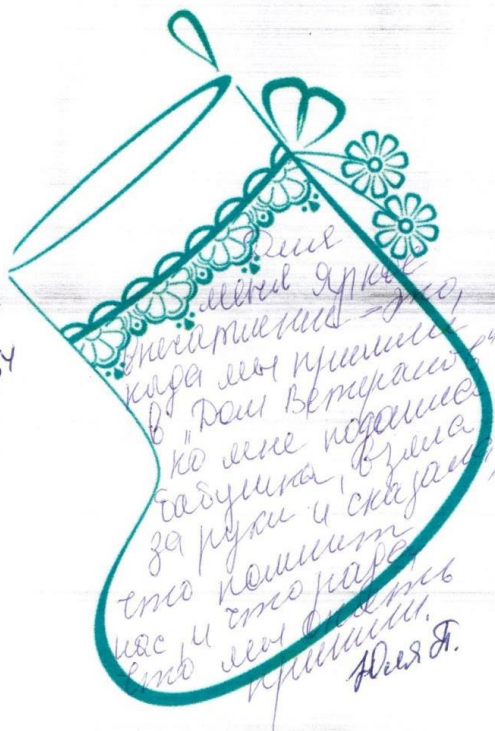 Для
меня яркое
впечатление – это,
когда мы пришли
в "Дом Ветеранов"
ко мне подошла
бабушка, взяла
за руки и сказала,
что помнит
нас и что рада
что мы опять
пришли.
Юля П.